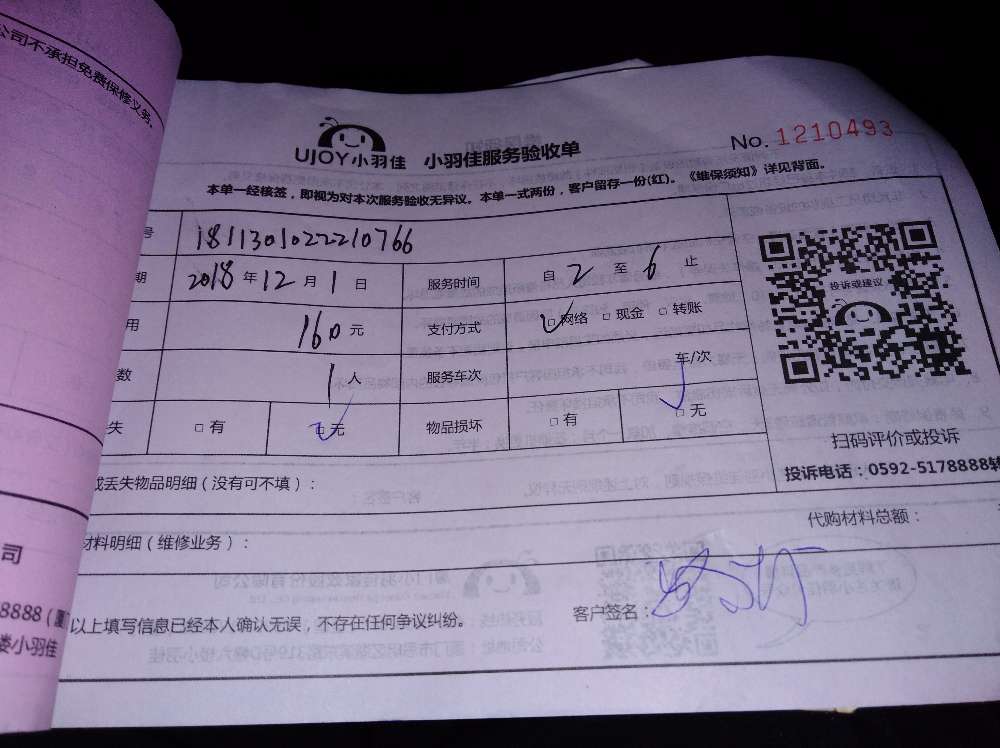 公司不承担免费保修义务。
UJOY小羽佳 小羽佳服务验收单
No. 1210493
本单一经核签，即视为对本次服务验收无异议。本单一式两份，客户留存一份(红)。《维保须知》详见背面。
号 1811301022210766
期 2018 年 12 月 1 日 服务时间 自 2 至 6 止
用 160 元 支付方式 □网络 □现金 □转账
数 1 人 服务车次 车/次
失 □有 □无 物品损坏 □有 □无
投诉或建议
扫码评价或投诉
投诉电话：0592-5178888转
或丢失物品明细（没有可不填）：
代购材料总额：
材料明细（维修业务）：
客户签名：
以上填写信息已经本人确认无误，不存在任何争议纠纷。
司
8888 (厦
楼小羽佳